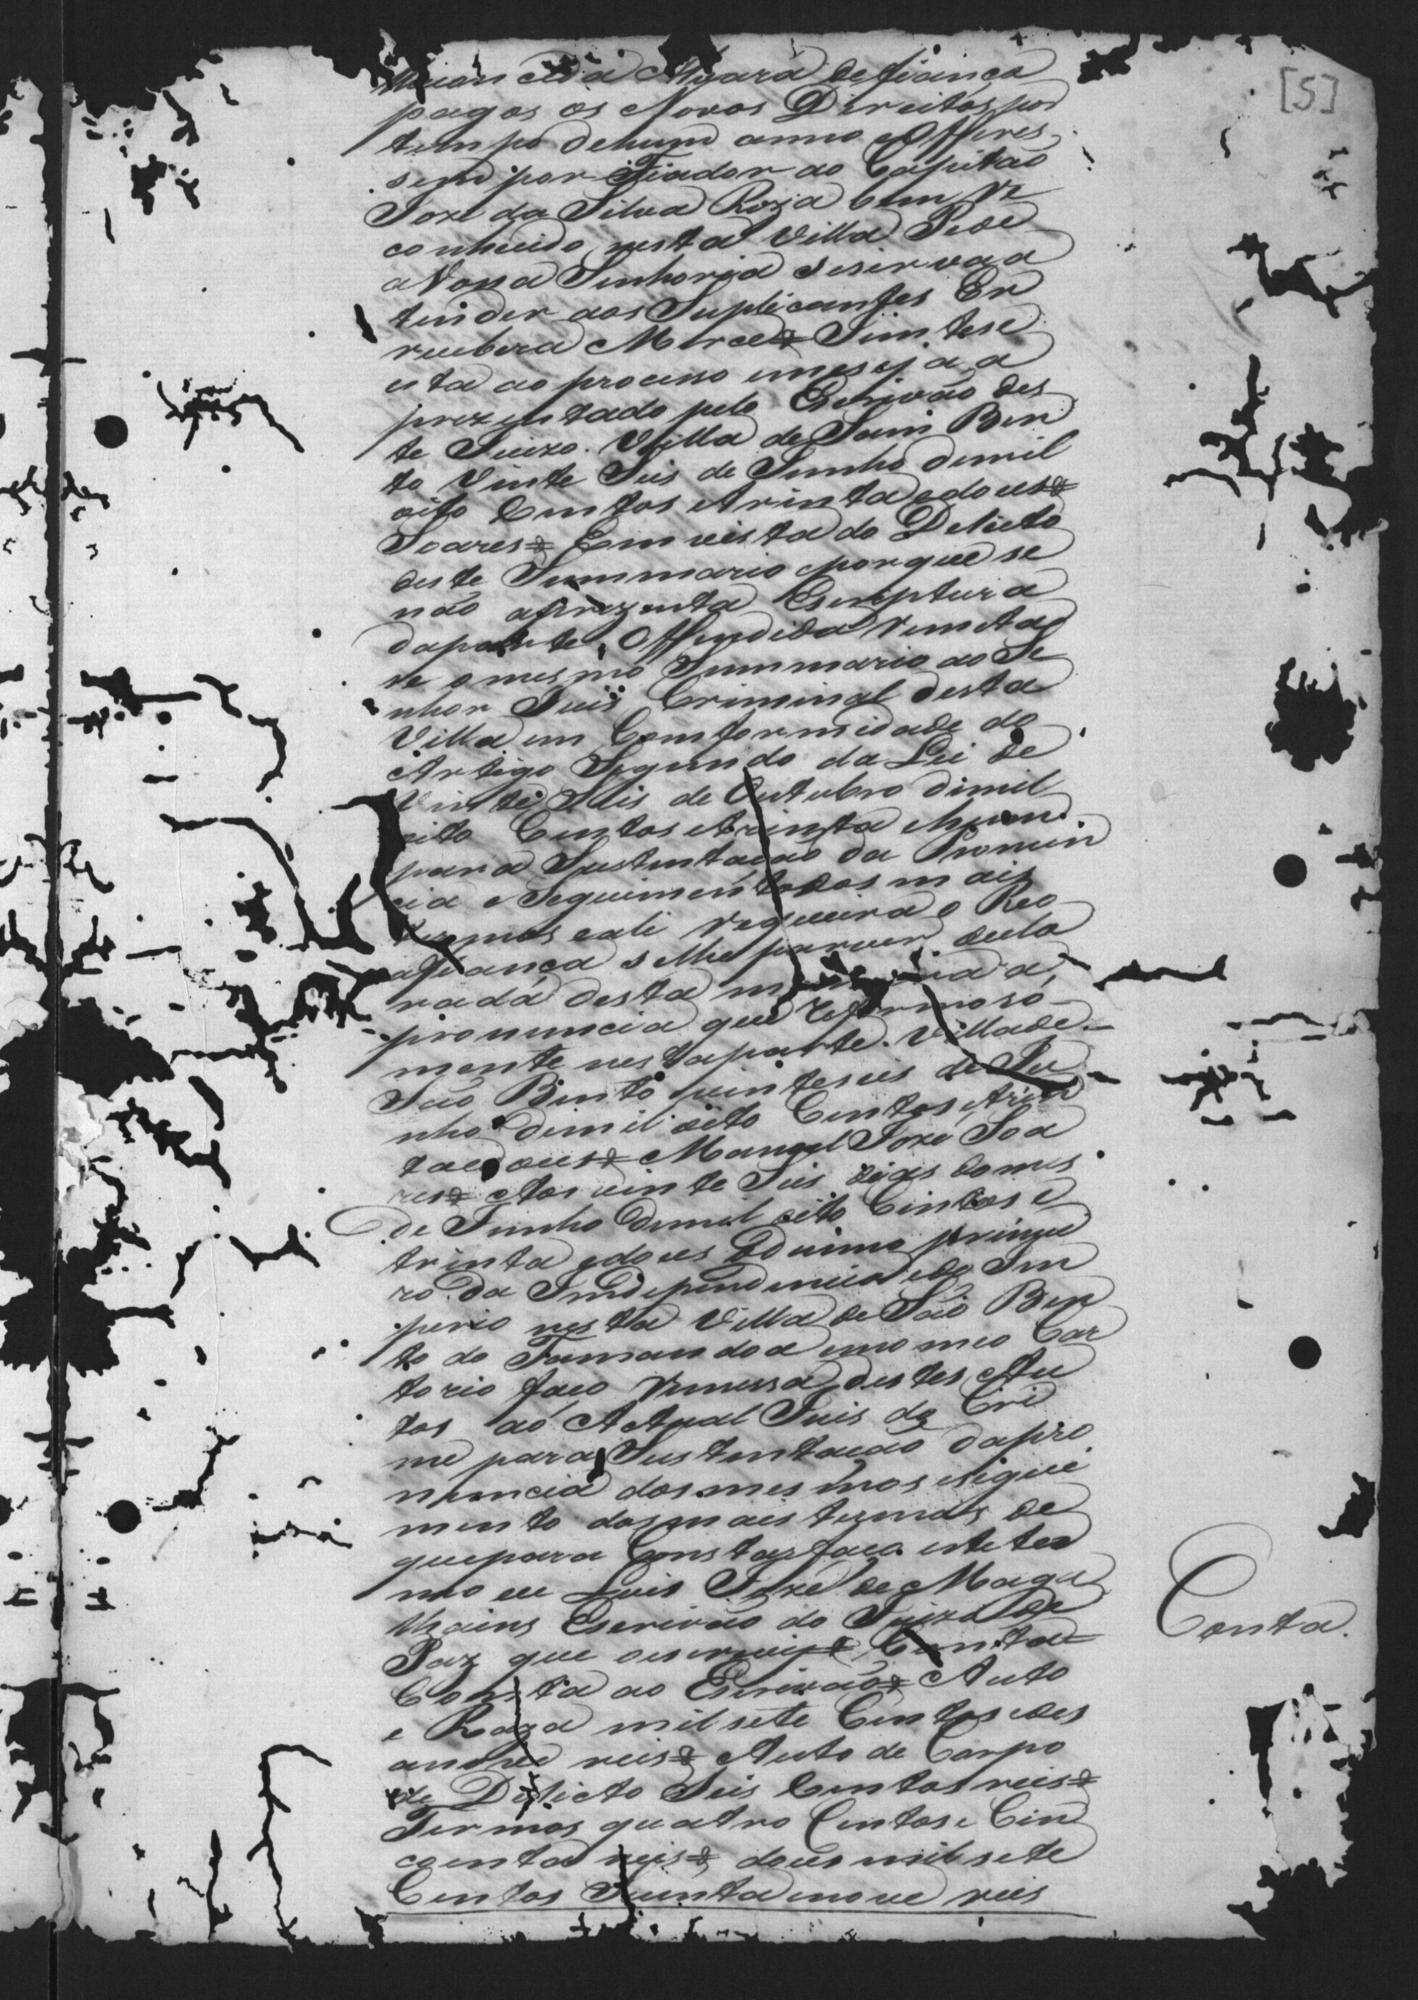 [5]
Alvara de fiança
pagos os Novos Direitos por
tempo dehum anno e Offeres
sem por Fiador ao Capitão
Joze da Silva Roza bem re
conhecido nesta Villa Pede
a Vossa Senhoria seserva a
tender aos Suplicantes E R
recebera Merce Sim, tese
esta ao processo emeseja a
prezentado pelo Escrivão des
te Juizo. Villa de Sam Ben
to Vinte Seis de Junho demil
oito Centos etrinta edoues
Soares Em vista do Delicto
deste Summario eporque se
não aprezenta Escriptura
daparte Offendida Remeta
se omesmo Summario ao Se
nhor Juis Criminal desta
Villa em Comformidade do
Artigo Segundo da Lei de
Vinte Seis de Outubro demil
oito Centos etrinta ehum
para Sustentação da Pronun
cia e Seguimento dos mais
termos eali requeira o Reo
afiança selhe parecer decla
rada desta a
pronuncia que só
mente nestaparte. Villa de
São Bento vinteseis de Ju
nho demil oito Centos etrin
taedoues Manoel Joze Soa
res Aos vinte Seis dias domes
de Junho demil oito Centos e
trinta edoues Décimo primei
ro da Independencia edo Im
perio nesta Villa de São Ben
to do Tamandoa emomeo Car
torio faço remessa destes Au
tos ao Actual Juis do Cri
me para Sustentação dapro
nuncia dosmesmos eseguei
mento dosmais termos de
quepara Constar faço este ter
mo eu Luis Joze de Maga
lhains Escrivão do Juizo de
Paz que oescrevi Conta
Conta.
Conta ao Escrivão Auto
e Raza mil sete Centos edes
anove reis Auto de Corpo
de Delicto Seis Centos reis
Termos quatro Centos e Cin
coenta reis doues mil sete
Centos Secenta nove reis